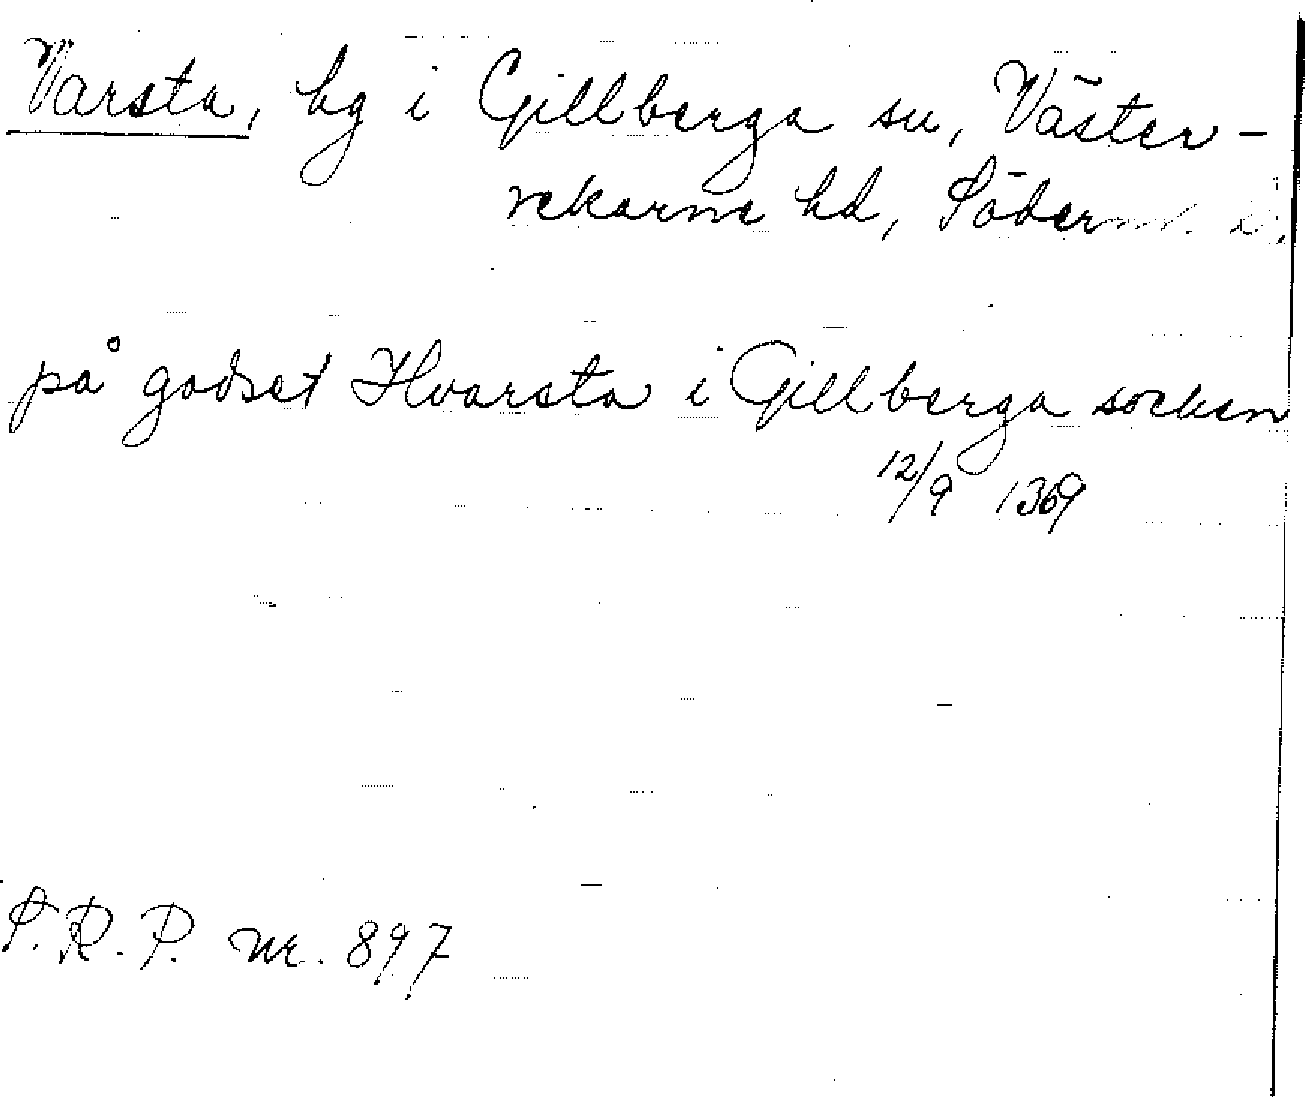 Varsta, hg i Gillberga sn, Väster-
rekarne hd, Söderml. l.
på godset Hvarsta i Gillberga socken
12/9 1369
S.R.P. nr. 897